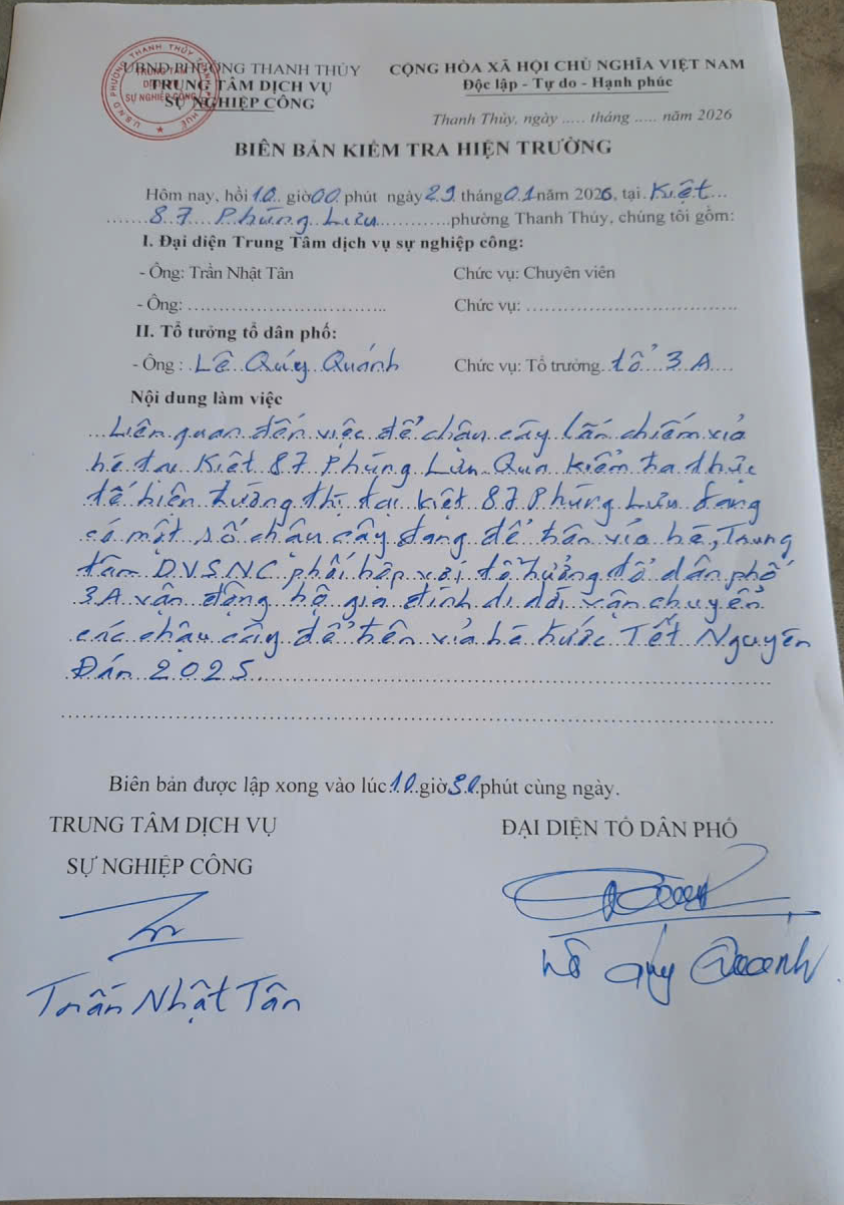 UBND PHƯỜNG THANH THỦY
TRUNG TÂM DỊCH VỤ
SỰ NGHIỆP CÔNG
CỘNG HÒA XÃ HỘI CHỦ NGHĨA VIỆT NAM
Độc lập - Tự do - Hạnh phúc
Thanh Thủy, ngày ..... tháng ..... năm 2026
BIÊN BẢN KIỂM TRA HIỆN TRƯỜNG
Hôm nay, hồi 10 giờ 00 phút ngày 29 tháng 01 năm 2026, tại Kiệt
87 Phùng Lưu phường Thanh Thủy, chúng tôi gồm:
I. Đại diện Trung Tâm dịch vụ sự nghiệp công:
- Ông: Trần Nhật Tân Chức vụ: Chuyên viên
- Ông: ................................. Chức vụ: .....................................
II. Tổ tưởng tổ dân phố:
- Ông : Lê Quý Quánh Chức vụ: Tổ trưởng tổ 3A
Nội dung làm việc
Liên quan đến việc để chậu cây lấn chiếm vỉa
hè tại Kiệt 87 Phùng Lưu. Qua kiểm tra thực
tế hiện trường thì tại kiệt 87 Phùng Lưu đang
có một số chậu cây đang để trên vỉa hè, Trung
tâm DVSNC phối hợp với tổ trưởng tổ dân phố
3A vận động hộ gia đình di dời vận chuyển
các chậu cây để trên vỉa hè trước Tết Nguyên
Đán 2025
Biên bản được lập xong vào lúc 10 giờ 30 phút cùng ngày.
TRUNG TÂM DỊCH VỤ
SỰ NGHIỆP CÔNG
ĐẠI DIỆN TỔ DÂN PHỐ
Trần Nhật Tân
Lê Quý